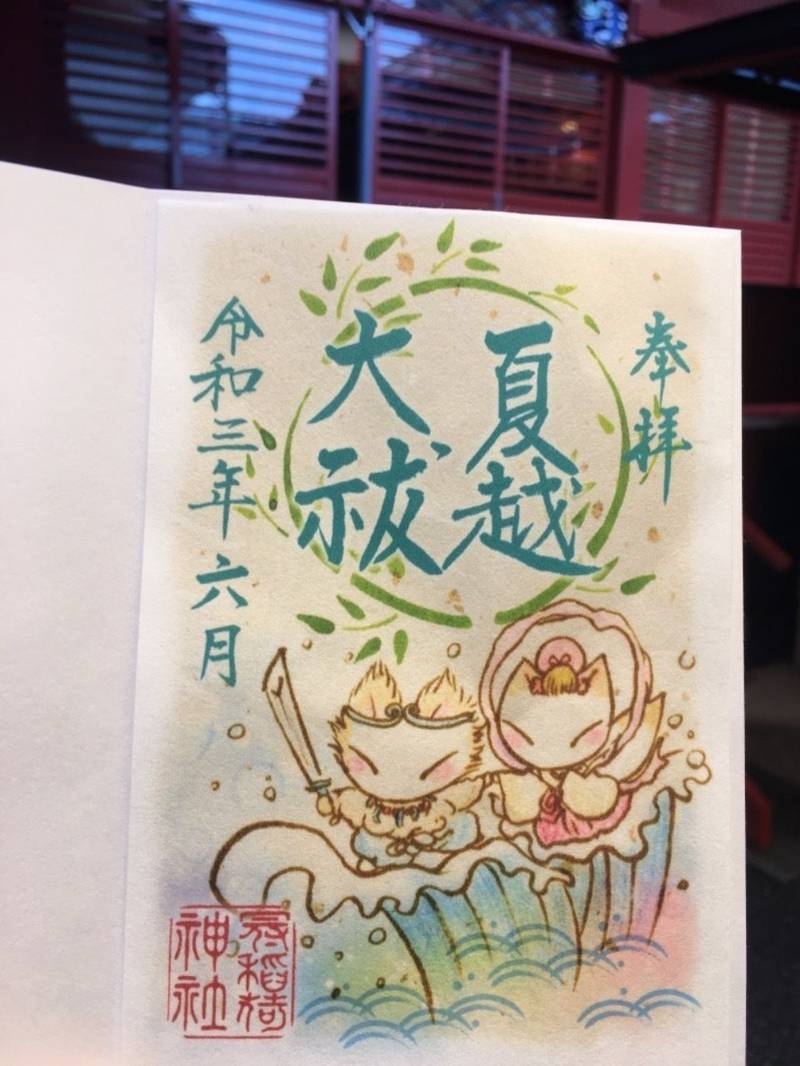 奉拝
夏越
大祓
令和三年六月
神社